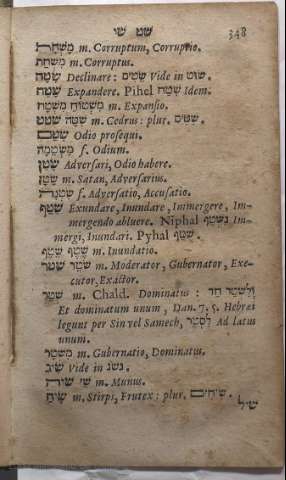 שט שי 348
מִשְׁחָת m. Corruptum, Corruptio.
מָשְׁחָת m. Corruptus.
שָׂטָה Declinare: שׂטִים Vide in שׂוט.
שָׁטַח Expandere. Pihel שִׁטַּח Idem.
מִשְׁטוֹחַ מִשְׁטַח m. Expansio.
שׁטט שִׁטָּה m. Cedrus: plur. שִׁטִּים.
שָׂטַם Odio prosequi.
מַשְׂטֵמָה f. Odium.
שָׂטַן Adversari, Odio habere.
שָׂטָן m. Satan, Adversarius.
שִׂטְנָה f. Adversatio, Accusatio.
שָׁטַף Exundare, Inundare, Immergere, Im-
mergendo abluere. Niphal נִשְׁטַף Im-
mergi, Inundari. Pyhal שֻׁטַּף.
שֶׁטֶף שֵׁטֶף m. Inundatio.
שׁטר שֹׁטֵר m. Moderator, Gubernator, Exe-
cutor, Exactor.
שְׁטַר m. Chald. Dominatus: וְלִשְׁטַר חַד
Et dominatum unum, Dan. 7. 5. Hebræi
legunt per Sin vel Samech, לִסְטַר Ad latus
unum.
מִשְׁטָר m. Gubernatio, Dominatus.
שׂיג Vide in נשׂג.
שׁי שַׁי m. Munus.
שִׂיחַ m. Stirps, Frutex: plur. שִׂיחִים.
שׁיל